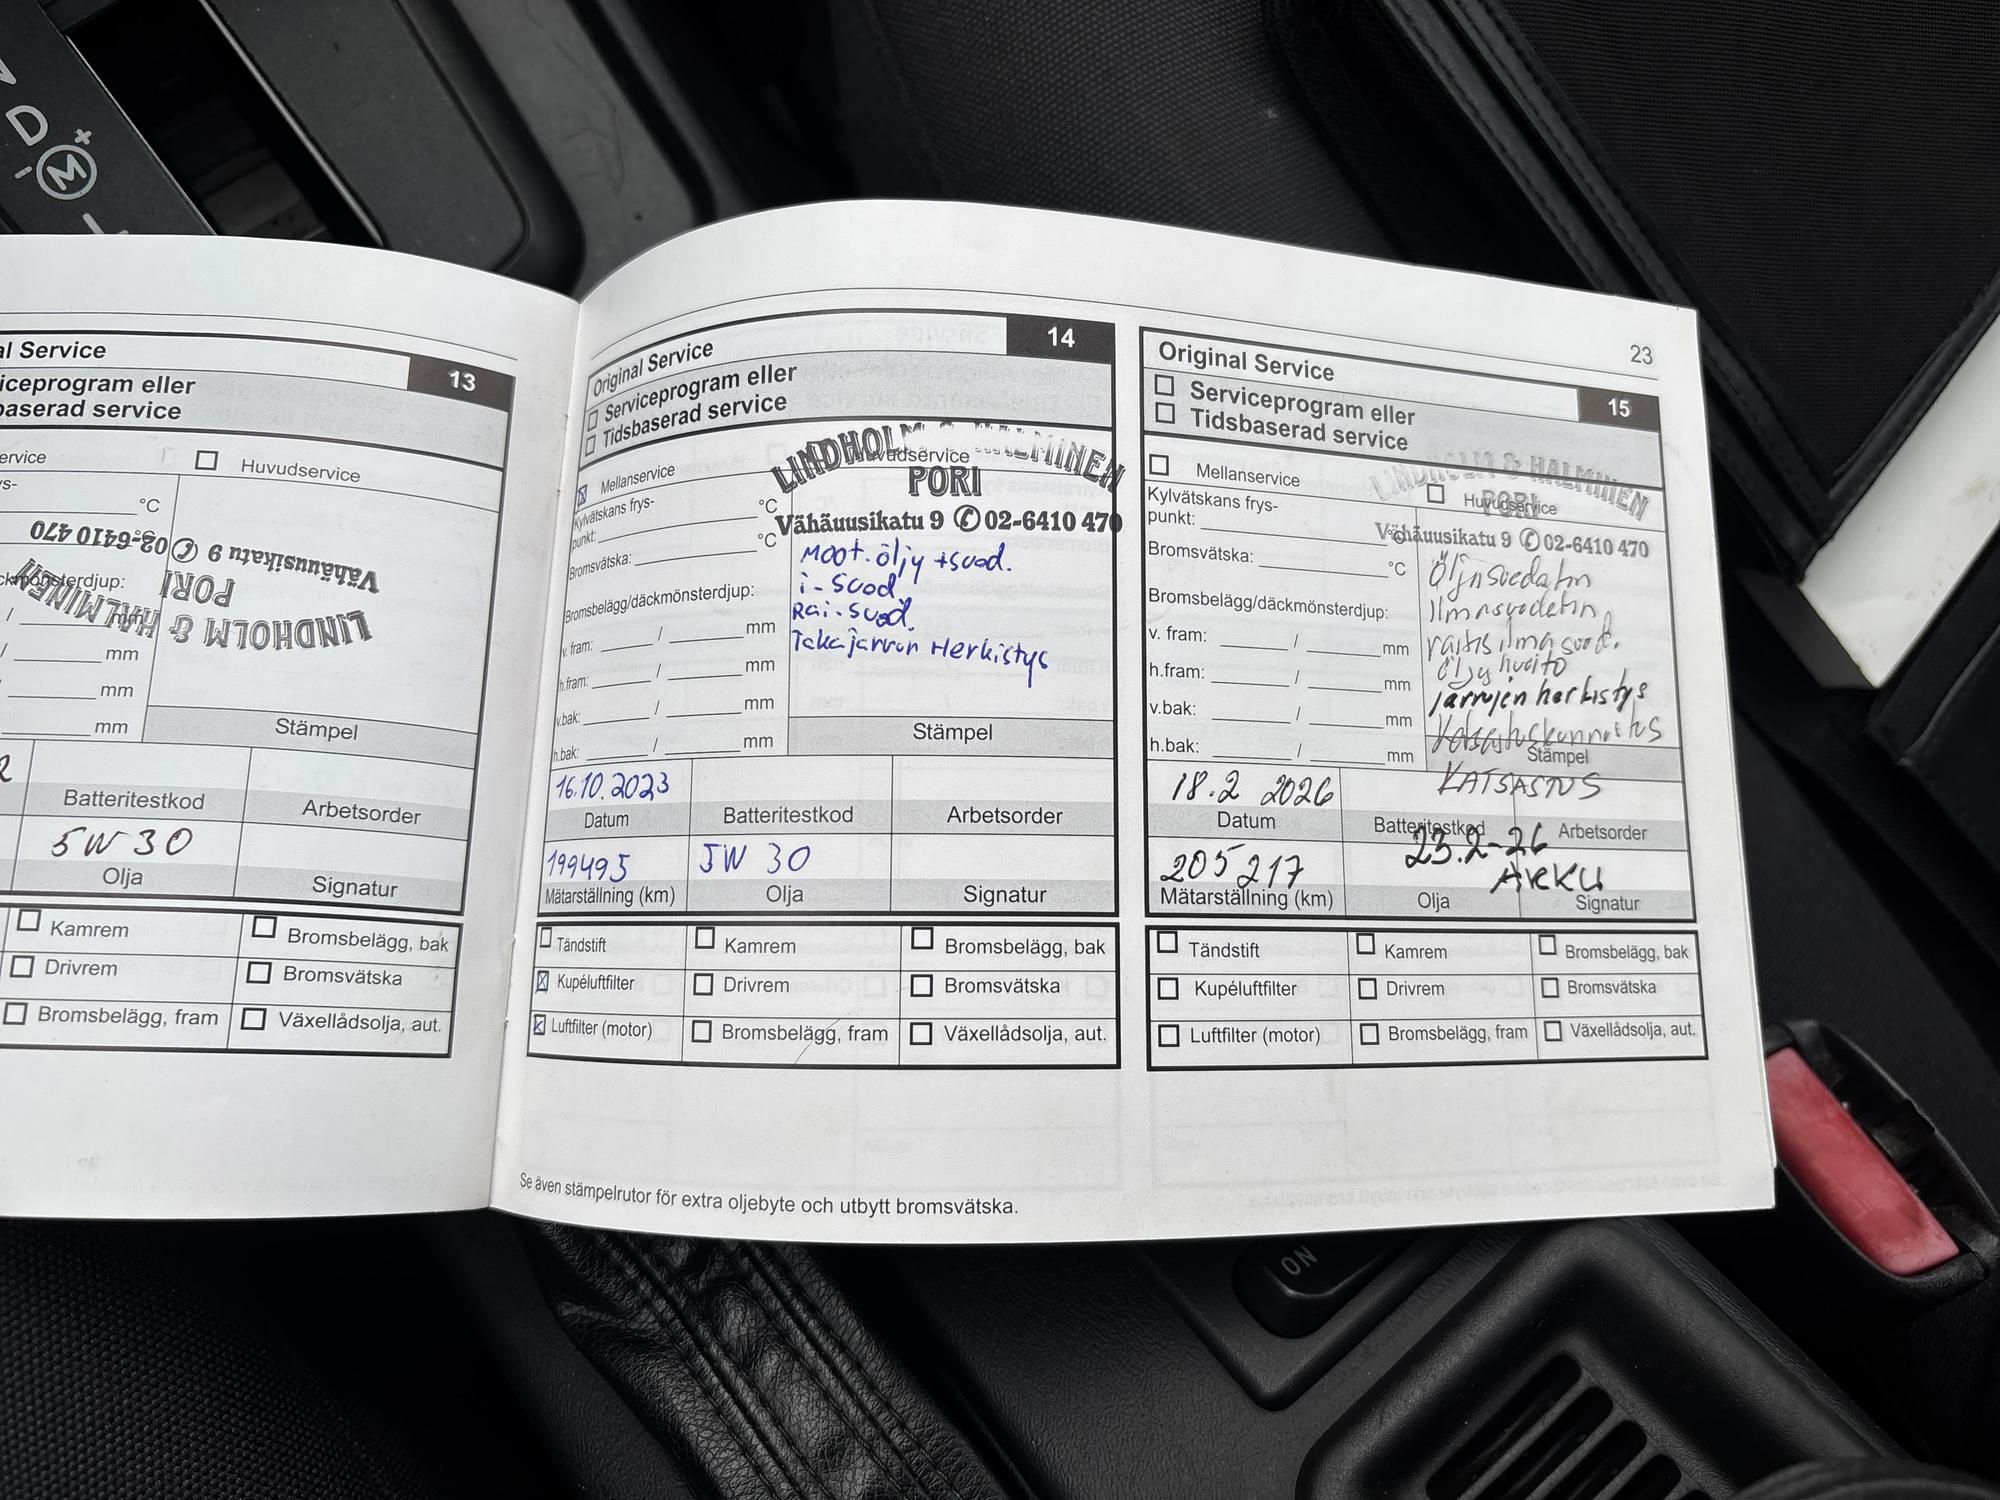 N
D
+
M
-
al Service
13
iceprogram eller
baserad service
ervice
Huvudservice
ys-
°C
02-6410 470
Vähäuusikatu 9 ✆
PORI
LINDHOLM & HALMINEN
ckmönsterdjup:
/ mm
/ mm
/ mm
/ mm
Stämpel
Batteritestkod
Arbetsorder
5W30
Olja
Signatur
Kamrem
Bromsbelägg, bak
Drivrem
Bromsvätska
Bromsbelägg, fram
Växellådsolja, aut.
Original Service
14
Serviceprogram eller
Tidsbaserad service
LINDHOLM & HALMINEN
PORI
Vähäuusikatu 9 ✆ 02-6410 470
Mellanservice
Huvudservice
Kylvätskans frys-
punkt: °C
Bromsvätska: °C
Bromsbelägg/däckmönsterdjup:
v. fram: / mm
h.fram: / mm
v.bak: / mm
h.bak: / mm
Moot.öljy +suod.
i-suod
Rai-suod.
Takajarrun Herkistys
Stämpel
16.10.2023
Datum
Batteritestkod
Arbetsorder
199495
5W 30
Mätarställning (km)
Olja
Signatur
Tändstift
Kamrem
Bromsbelägg, bak
Kupéluftfilter
Drivrem
Bromsvätska
Luftfilter (motor)
Bromsbelägg, fram
Växellådsolja, aut.
Se även stämpelrutor för extra oljebyte och utbytt bromsvätska.
23
Original Service
15
Serviceprogram eller
Tidsbaserad service
LINDHOLM & HALMINEN
PORI
Vähäuusikatu 9 ✆ 02-6410 470
Mellanservice
Huvudservice
Kylvätskans frys-
punkt: °C
Bromsvätska: °C
Bromsbelägg/däckmönsterdjup:
v. fram: / mm
h.fram: / mm
v.bak: / mm
h.bak: / mm
raitis ilma suod.
öljy huolto
jarrujen herkistys
Stämpel
KATSASTUS
18.2 2026
Datum
Batteritestkod
Arbetsorder
23.2-26
AKKU
205217
Mätarställning (km)
Olja
Signatur
Tändstift
Kamrem
Bromsbelägg, bak
Kupéluftfilter
Drivrem
Bromsvätska
Luftfilter (motor)
Bromsbelägg, fram
Växellådsolja, aut.
ON